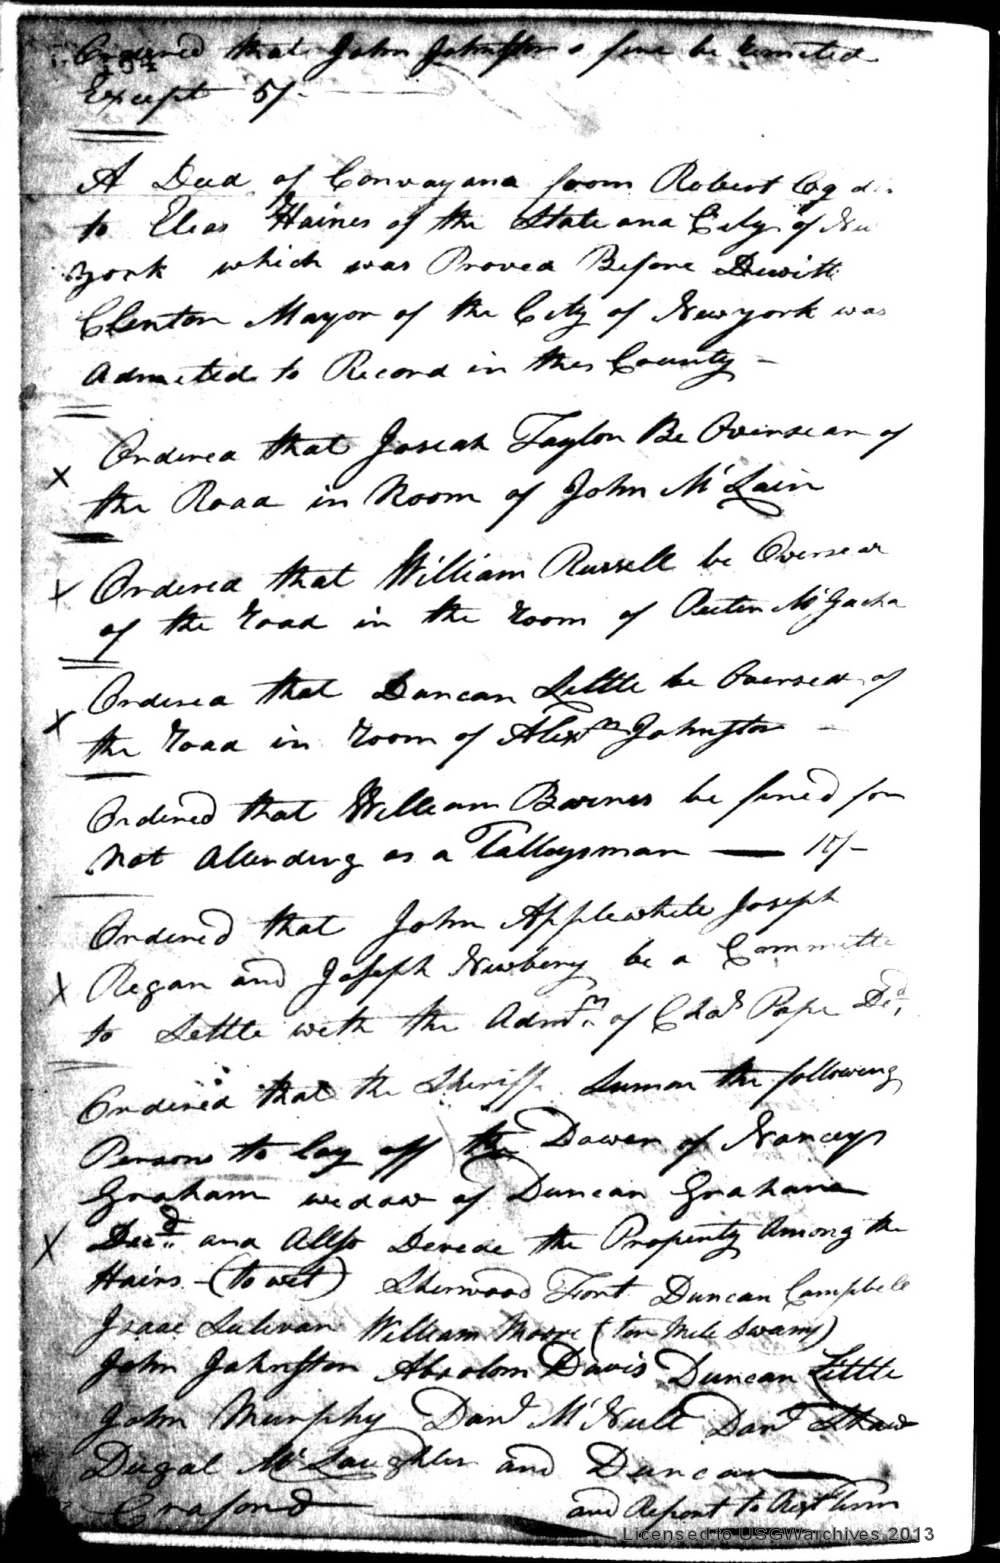 Ordered that John Johnston s fine be remited
Except 5/-
A Deed of Convayana from Robert
to Elias Haines of the State and City of New
york which was Proved Before Dewitt
Clinton Mayor of the City of Newyork was
Admited to Record in this County -
X Ordered that Josiah Taylor Be Overseear of
the Road in Room of John Mc Lain
X Ordered that William Russell be Overseear
of the road in the room of
X Ordered that Duncan Little be Overseear of
the road in room of Alexr Johnston -
Ordered that William Barnes be fined for
Not Attending as a Talleysman — 10/-
Ordered that John Applewhite Joseph
X Regan and Joseph Newbery be a Committe
to Settle with the Admr. of Chas Pope Decd.
Ordered that the Sheriff Sumon the following
Persons to lay off the Dower of Nanceys
Graham widow of Duncan Graham
X Decd. and Allso Devide the Property Among the
Hairs - (to wit) Sherwood Fort Duncan Campbell
Isaac Sulivan William Moore (ten Mile Swamp)
John Johnston Absolom Davis Duncan Little
John Murphy Danl Mc Neill Danl Shaw
Dugal Mc Laughlin and Duncan
Craford and Report to Next Term
Licensed to USGWarchives 2013